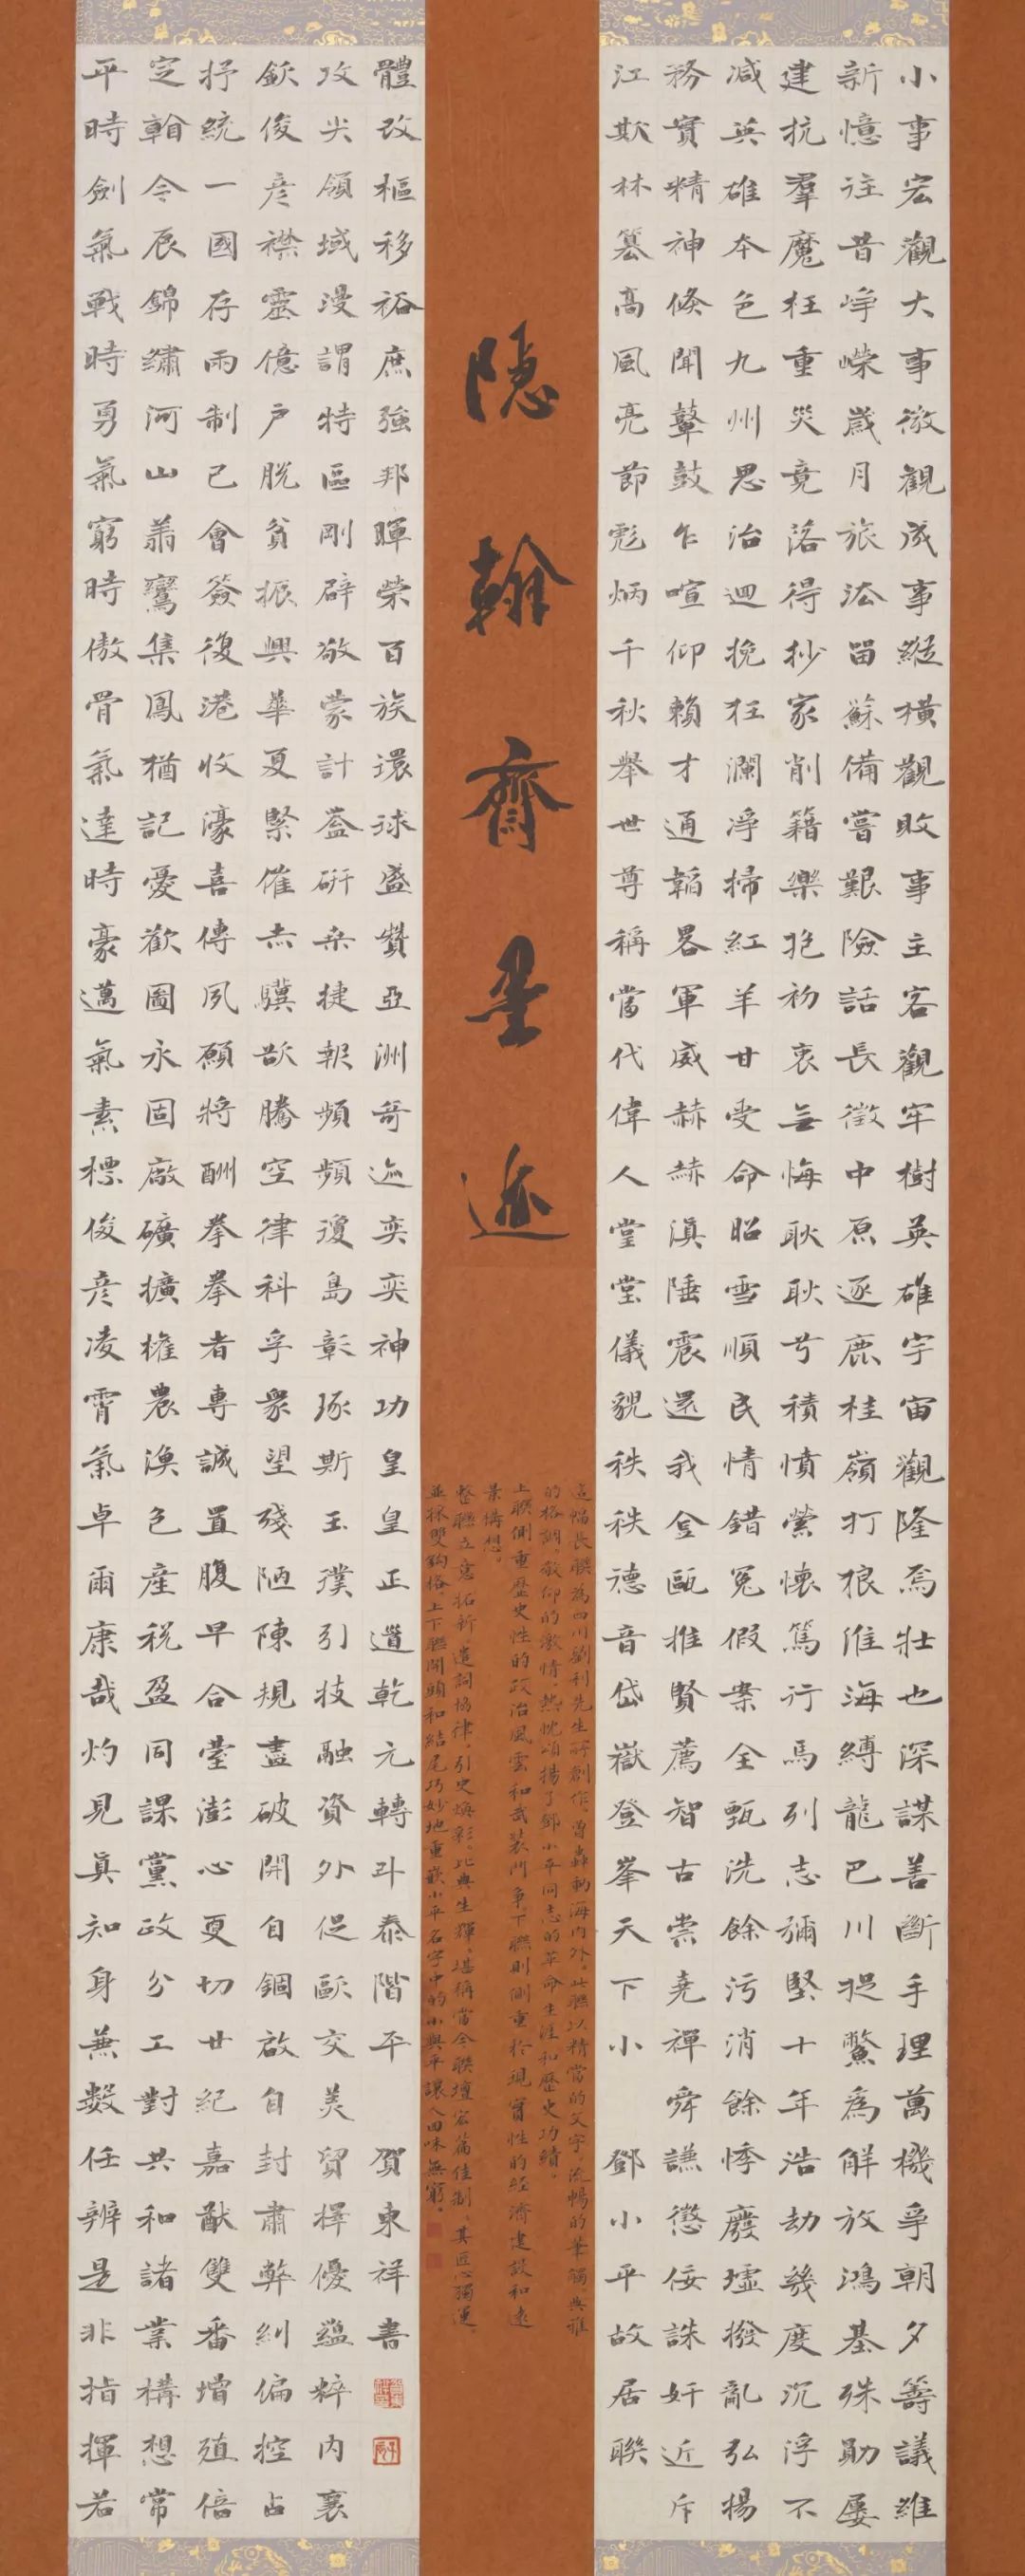 小事宏觀大事微觀成事縱橫觀敗事主客觀牢樹英雄宇宙觀隆焉壯也深謀善斷手理萬機爭朝夕籌議維
新憶往昔崢嶸歲月旅法留蘇備嘗艱險話長徵中原逐鹿桂嶺打狼淮海縛龍巴川捉鱉為解放鴻基殊勛屢
建抗羣魔枉重災竟落得抄家削籍樂抱初衷无悔耿耿兮積憤縈懷篤行馬列志彌堅十年浩劫幾度沉浮不
减兵雄本色九州思治迴挽狂瀾淨掃紅羊甘受命昭雪順民情錯冤假案全甄洗餘污消餘悸廢墟撥亂弘揚
務實精神倏聞鼙鼓乍喧仰賴才通韜畧軍威赫赫滇陲震還我金甌推賢薦智古崇堯禪舜謙懲佞誅奸近斥
江欺林篡高風亮節彪炳千秋舉世尊稱當代偉人堂堂儀貌秩秩德音岱嶽登峯天下小 鄧小平故居聯
隱翰齋墨迹
這幅長聯為四川劉利先生所創作，曾轟動海内外。此聯以精當的文字，流暢的筆觸，典雅
的格調，敬仰的激情，熱忱頌揚了鄧小平同志的革命生涯和歷史功績。
上聯側重歷史性的政治風雲和武裝鬥爭，下聯則側重於現實性的經濟建設和遠
景構想。
整聯立意拓新，遣詞協律，引史煥彩，比典生輝，堪稱當今聯壇宏篇佳制。其匠心獨運，
並採雙鈎格，上下聯開頭和結尾巧妙地重嵌小平名字中的小與平，讓人回味無窮。
平時劍氣戰時勇氣窮時傲骨氣達時豪邁氣素標俊彥凌霄氣卓爾康哉灼見真知身兼數任辨是非指揮若
定翰令辰錦繡河山翥鸞集鳳猶記憂歡圖永固廠礦擴權農漁包產税盈同課黨政分工對共和諸業構想常
抒統一國存兩制已會簽復港收濠喜傳夙願將酬拳拳者專誠置腹早合臺澎心更切廿紀嘉猷雙番增殖倍
欽俊彥襟靈億户脱貧振興華夏緊催赤驥歆騰空律科孚衆望殘陋陳規盡破開自錮啟自封肅弊糾偏控占
攻尖領域漫謂特區剛辟敬蒙計益研桑捷報頻頻瓊島彰琢斯玉璞引技融資外促歐交美貿擇優蘊粹内襄
體改樞移裕庶強邦暉榮百族環球盛贊亞洲奇迹奕奕神功皇皇正道乾元轉斗泰階平 賀東祥書